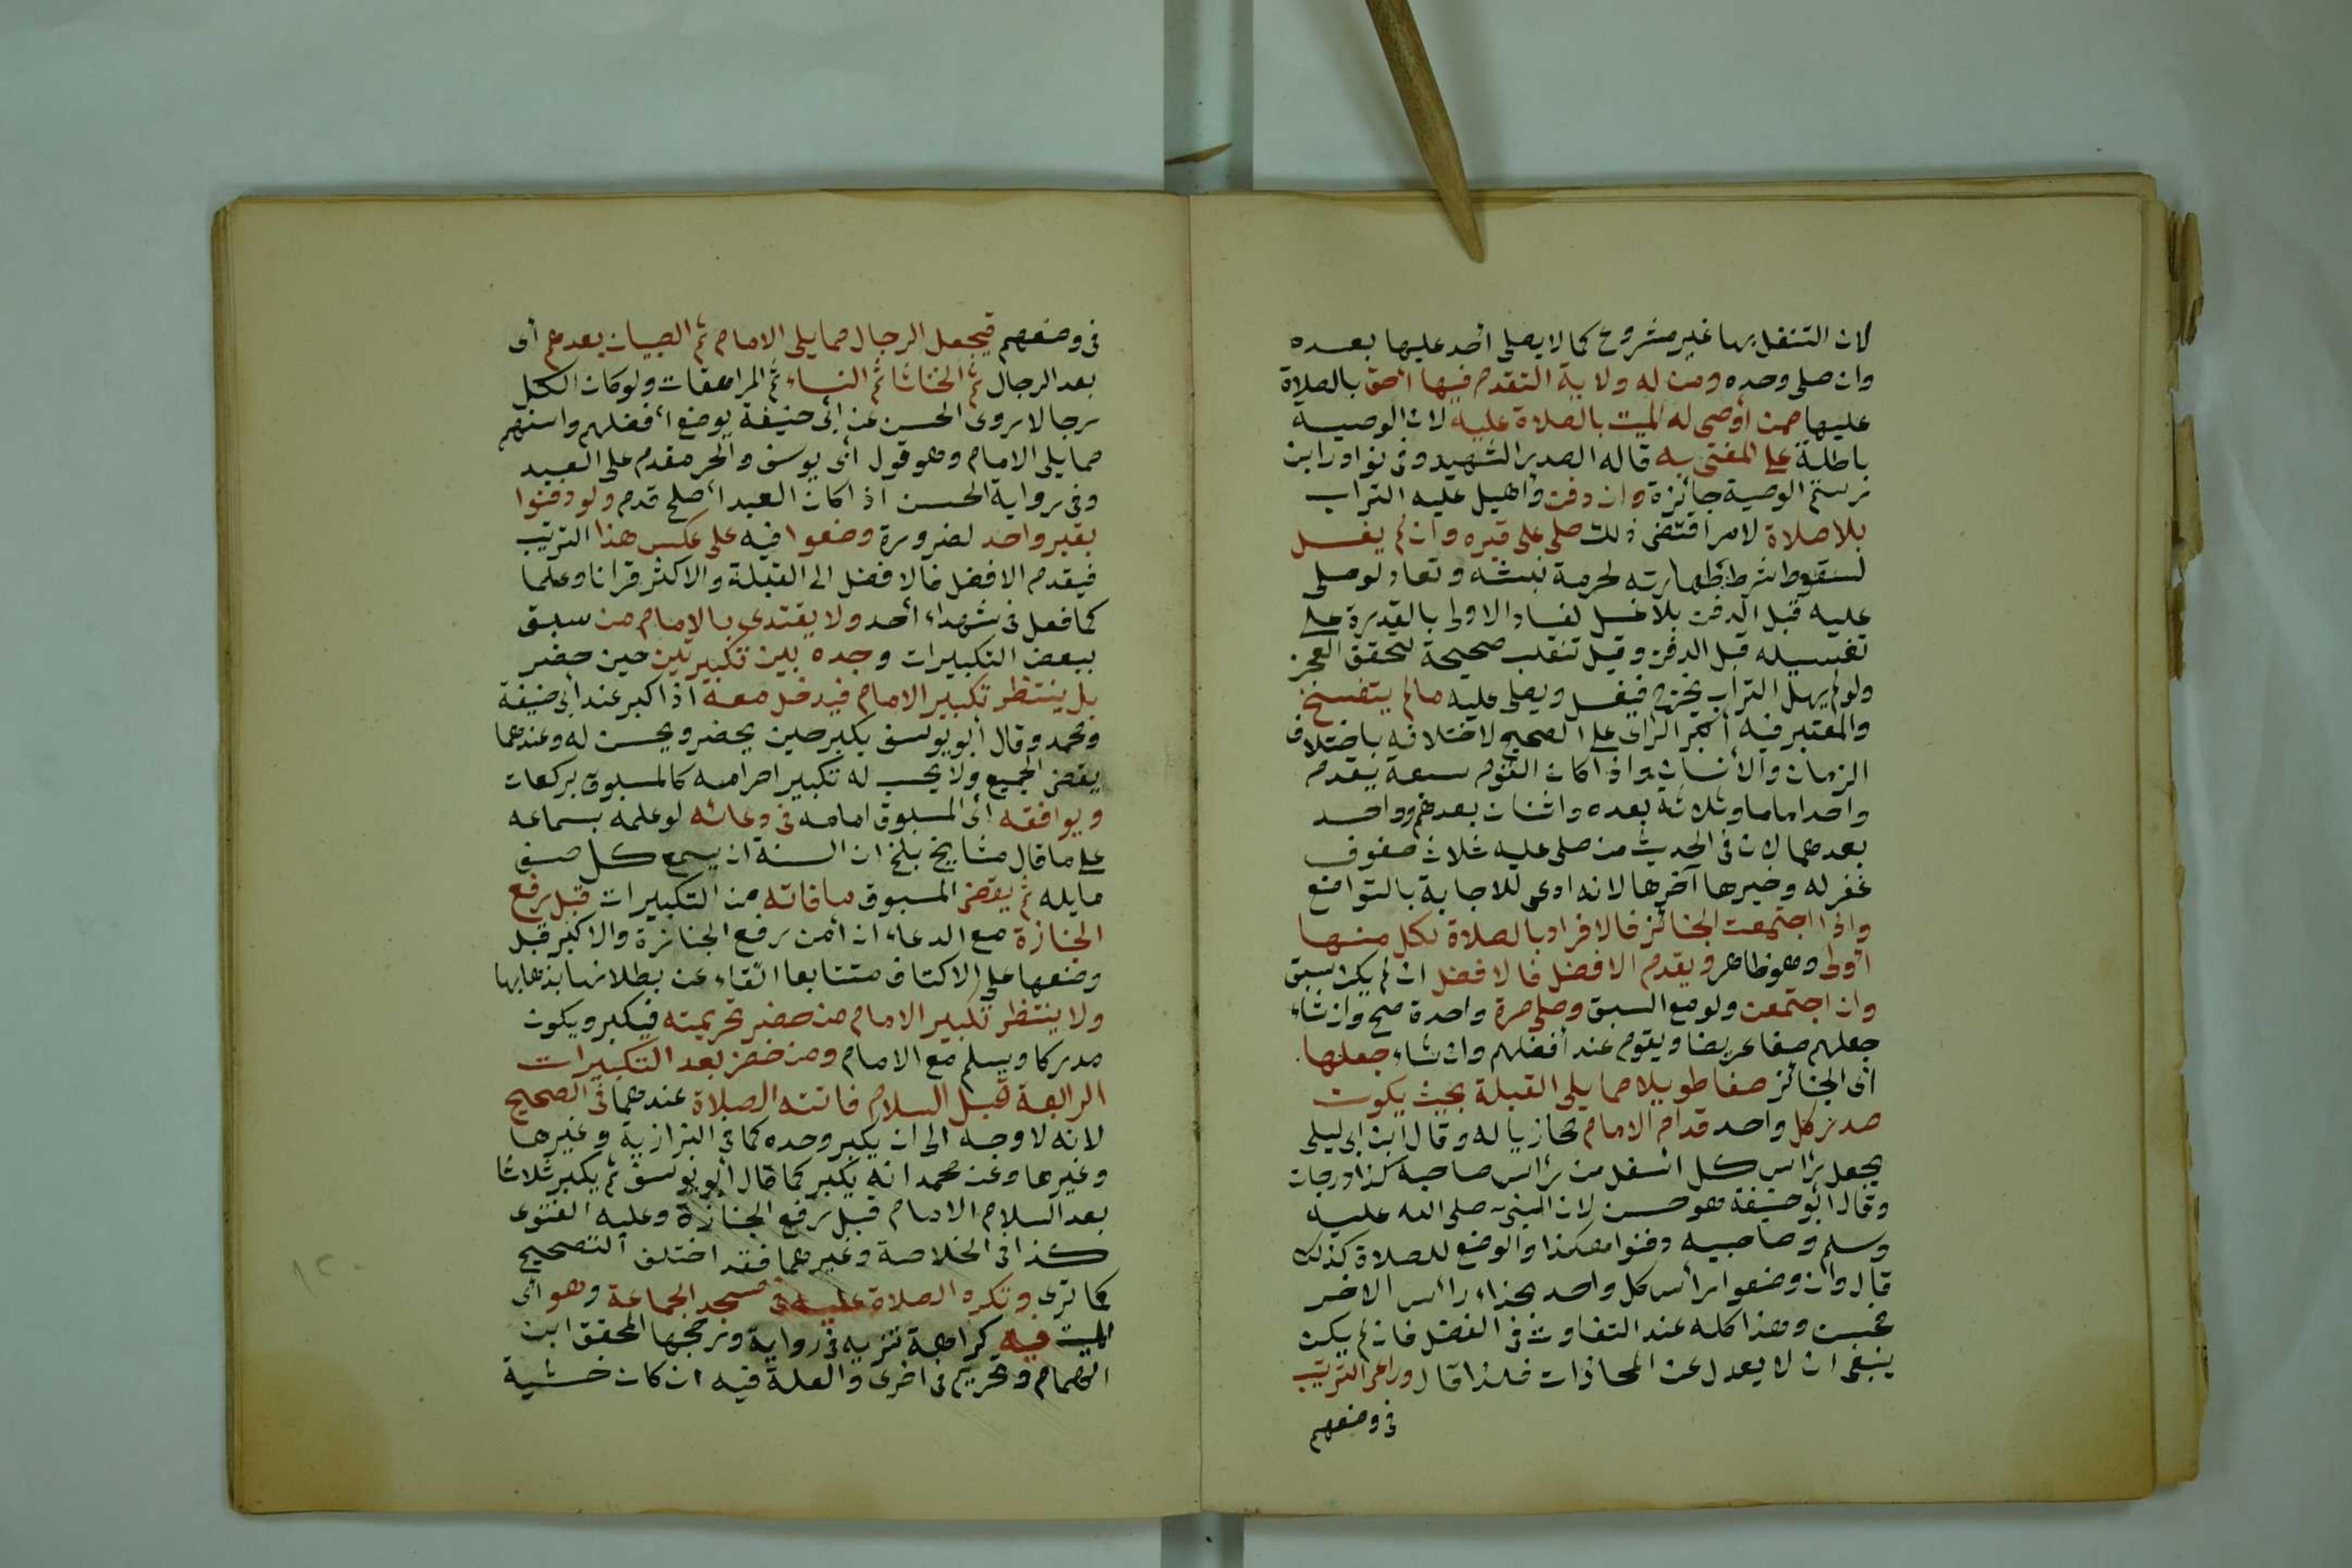 لان التنفل بها غير مشروع كما لا يصلى أحد عليها بعده
وان صلى وحده ومن له ولاية التقدم فيها أحق بالصلاة
عليها ممن أوصى له الميت بالصلاة عليه لان الوصية
باطلة على المفتى به قاله الصدر الشهيد وفى نوادر ابن
رستم الوصية جائزة وان دفن وأهيل عليه التراب
بلا صلاة لامر اقتضى ذلك صلى على قبره وان لم يغسل
لسقوط شرط طهارته لحرمة نبشه وتعاد لو صلى
عليه قبل الدفن بلا غسل لفساد الاولى بالقدرة على
تغسيله قبل الدفن وقيل تنقلب صحيحة لتحقق العجز
ولو لم يهل التراب يخرج فيغسل ويصلى عليه ما لم يتفسخ
والمعتبر فيه أكبر الراى على الصحيح لاختلافه باختلاف
الزمان والانسان واذا كان القوم سبعة يقدم
واحدا اماما وثلاثة بعده واثنان بعدهم وواحد
بعدهما لان فى الحديث من صلى عليه ثلاث صفوف
غفر له وخيرها آخرها لانه ادعى للاجابة بالتواضع
واذا اجتمعت الجنائز فالافراد بالصلاة لكل منها
أولى وهو ظاهر ويقدم الافضل فالافضل ان لم يكن سبق
وان اجتمعن ولو مع السبق وصلى مرة واحدة صح وان شاء
جعلهم صفا عريضا ويقوم عند أفضلهم وان شاء جعلها
أى الجنائز صفا طويلا مما يلى القبلة بحيث يكون
صدر كل واحد قدام الامام محازيا له وقال ابن ابى ليلى
يجعل رأس كل اسفل من رأس صاحبه كذا درجات
وقال أبو حنيفة هو حسن لان النبى صلى الله عليه
وسلم وصاحبيه دفنوا هكذا والوضع للصلاة كذلك
قال وان وضعوا رأس كل واحد بحذاء رأس الاخر
فحسن وهذا كله عند التفاوت فى الفضل فان لم يكن
ينبغى ان لا يعدل عن المحاذات فلذا قال وراعى الترتيب
فى وضعهم
فى وضعهم فيجعل الرجال مما يلى الامام ثم الصبيان بعدهم أى
بعد الرجال ثم الخناثا ثم النساء ثم المراهقات ولو كان الكل
رجالا روى الحسن عن ابى حنيفة يوضع أفضلهم واسنهم
مما يلى الامام وهو قول أبى يوسف والحر مقدم على العبد
وفى رواية الحسن اذا كان العبد أصلح قدم ولو دفنوا
بقبر واحد لضرورة وضعوا فيه على عكس هذا الترتيب
فيقدم الافضل فالافضل الى القبلة والاكثر قرانا وعلما
كما فعل فى شهداء أحد ولا يقتدى بالامام من سبق
ببعض التكبيرات وجده بين تكبيرتين حين حضر
بل ينتظر تكبير الامام فيدخل معه اذا كبر عند أبى حنيفة
ومحمد وقال أبو يوسف يكبر حين يحضر ويحسن له وعندهما
يقضى الجميع ولا يحسب له تكبير احرامه كالمسبوق بركعات
ويوافقه أى المسبوق امامه فى دعائه لو علمه بسماعه
على ما قال مشايخ بلخ ان السنة ان يسمع كل صف
ما يله ثم يقضى المسبوق ما فاته من التكبيرات قبل رفع
الجنازة مع الدعاء ان أمن رفع الجنازة والا كبر قبل
وضعها على الاكتاف متتابعا اتقاء عن بطلانها بذهابها
ولا ينتظر تكبير الامام من حضر تحريمته فيكبر ويكون
مدركا ويسلم مع الامام ومن حضر بعد التكبيرات
الرابعة قبل السلام فاتته الصلاة عندهما فى الصحيح
لانه لا وجه الى ان يكبر وحده كما فى البزازية وغيرها
وغيرها وعن محمد انه يكبر كما قال أبو يوسف ثم يكبر ثلاثا
بعد السلام الامام قبل رفع الجنازة وعليه الفتوى
كذا فى الخلاصة وغيرهما فقد اختلف التصحيح
كما ترى وتكره الصلاة عليه فى مسجد الجماعة وهو أى
الميت فيه كراهة تنزيه فى رواية ورجحها المحقق ابن
الهمام وتحريم فى اخرى والعلة فيه ان كان خشية